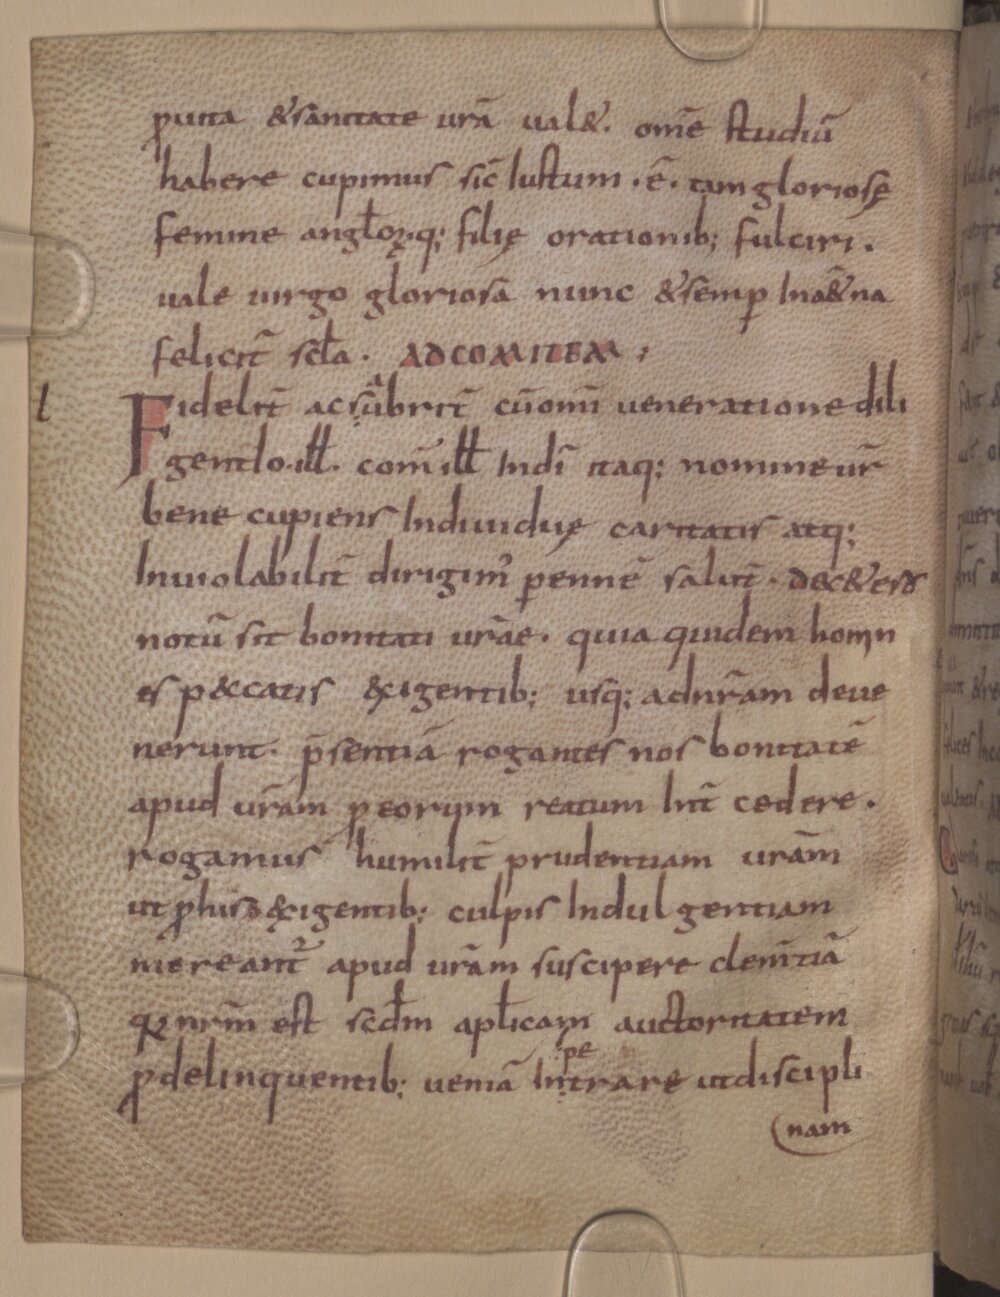 ꝓuita &sanitate urā ual&. omē studiū
habere cupimus sic̄ Iustum . ē . tam gloriosę
femine angłoꝝ.q; filię orationib; fulciri .
uale uirgo gloriosā nunc &semp̄ In a&̄na
felicit̄ scła . AD COMITEM ;
l
Fidelit̄ ac sūabrit̄ cū omī ueneratione dili
gendo . ill̄. com̄ ill̄ In dī itaq; nomine ur̄
bene cupiens Indiuiduę caritatis atq;
Inuiolabilit̄ dirigim᾿ pennē salut̄ . dec&erō
notū sit bonitati urāe . quia quidem homin
es p&catis &xigentib; usq; ad nr̄am deue
nerunt . p̄sentiā rogantes nos bonitatē
apud ur̄am ꝓ eorum reatum Int̄cedere .
rogamus humilit̄ prudentiam urām
ut ꝓ his &xigentib; culpis Indulgentiam
mereant᾿ apud urām suscipere clem̄tiā
Qr nr̄m est scd̄m apłicam auctoritatem
ꝓ delinquentib; ueniā Intrare ut discipli
pe
nam